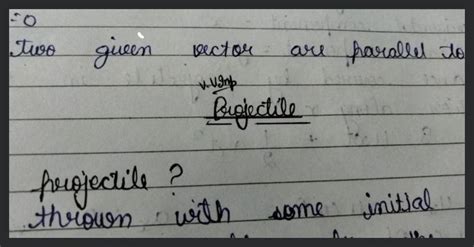 =0
two given vector are parallel to
v.v.Imp
Projectile
projectile ?
thrown with some initial